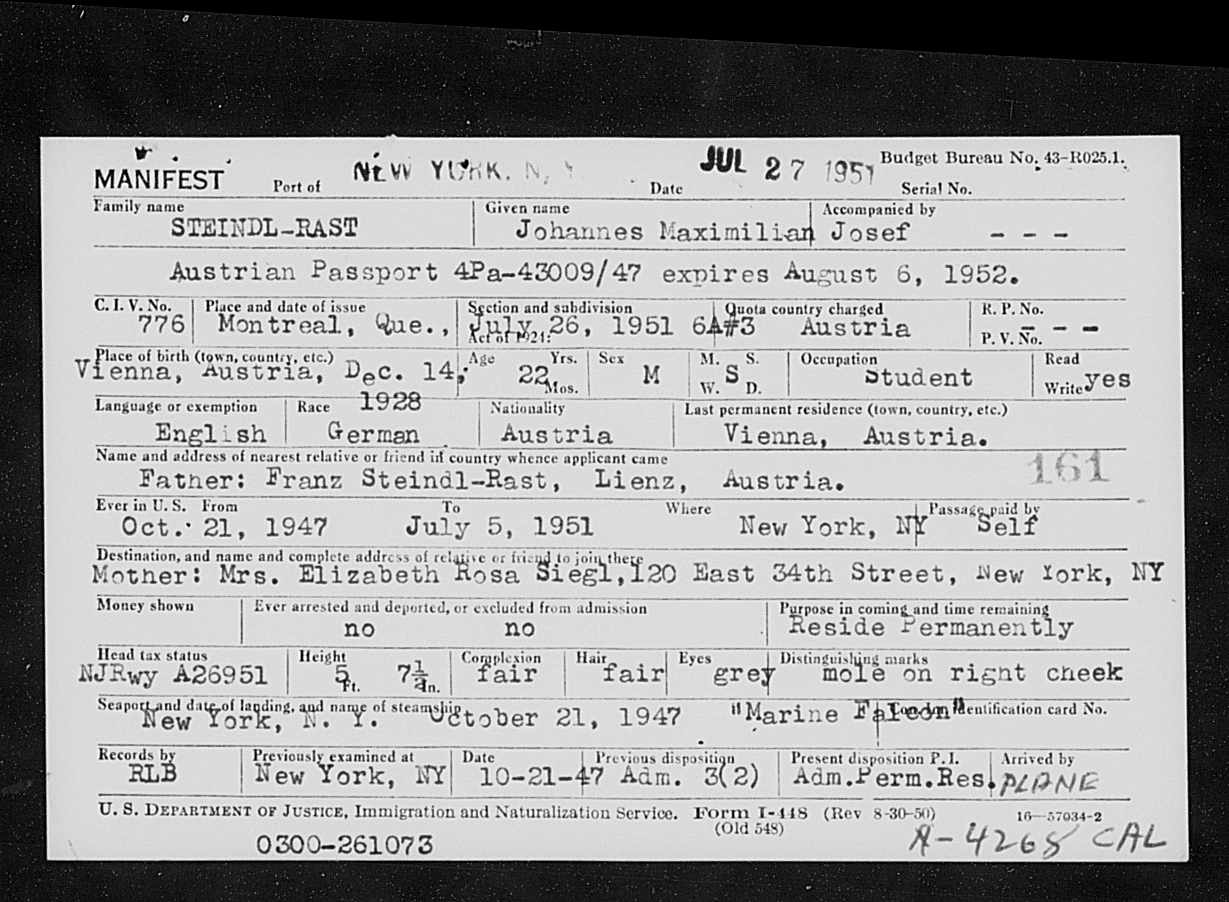 MANIFEST Port of NEW YORK, N. Y. Date JUL 27 1951 Budget Bureau No. 43-R025.1.
Serial No.
Family name Given name Accompanied by
STEINDL-RAST Johannes Maximilian Josef - - -
Austrian Passport 4Pa-43009/47 expires August 6, 1952.
C. I. V. No. Place and date of issue Section and subdivision Quota country charged R. P. No.
776 Montreal, Que., July 26, 1951 6A#3 Austria - - -
Act of 1924: P. V. No.
Place of birth (town, country, etc.) Age Yrs. Sex M. S. Occupation Read
Vienna, Austria, Dec. 14, 22 M S Student yes
Mos. W. D. Write
1928
Language or exemption Race Nationality Last permanent residence (town, country, etc.)
English German Austria Vienna, Austria.
Name and address of nearest relative or friend in country whence applicant came
Father: Franz Steindl-Rast, Lienz, Austria. 161
Ever in U. S. From To Where Passage paid by
Oct. 21, 1947 July 5, 1951 New York, NY Self
Destination, and name and complete address of relative or friend to join there
Mother: Mrs. Elizabeth Rosa Siegl, 120 East 34th Street, New York, NY
Money shown Ever arrested and deported, or excluded from admission Purpose in coming and time remaining
no no Reside Permanently
Head tax status Height Complexion Hair Eyes Distinguishing marks
NJRwy A26951 5 Ft. 7½ In. fair fair grey mole on right cheek
Seaport and date of landing, and name of steamship Identification card No.
New York, N. Y. October 21, 1947 "Marine Falcon"
Records by Previously examined at Date Previous disposition Present disposition P. I. Arrived by
RLB New York, NY 10-21-47 Adm. 3(2) Adm.Perm.Res. PLANE
U. S. DEPARTMENT OF JUSTICE, Immigration and Naturalization Service. Form I-448 (Rev 8-30-50) 16—57034-2
(Old 548)
0300-261073 A-4268 CAL